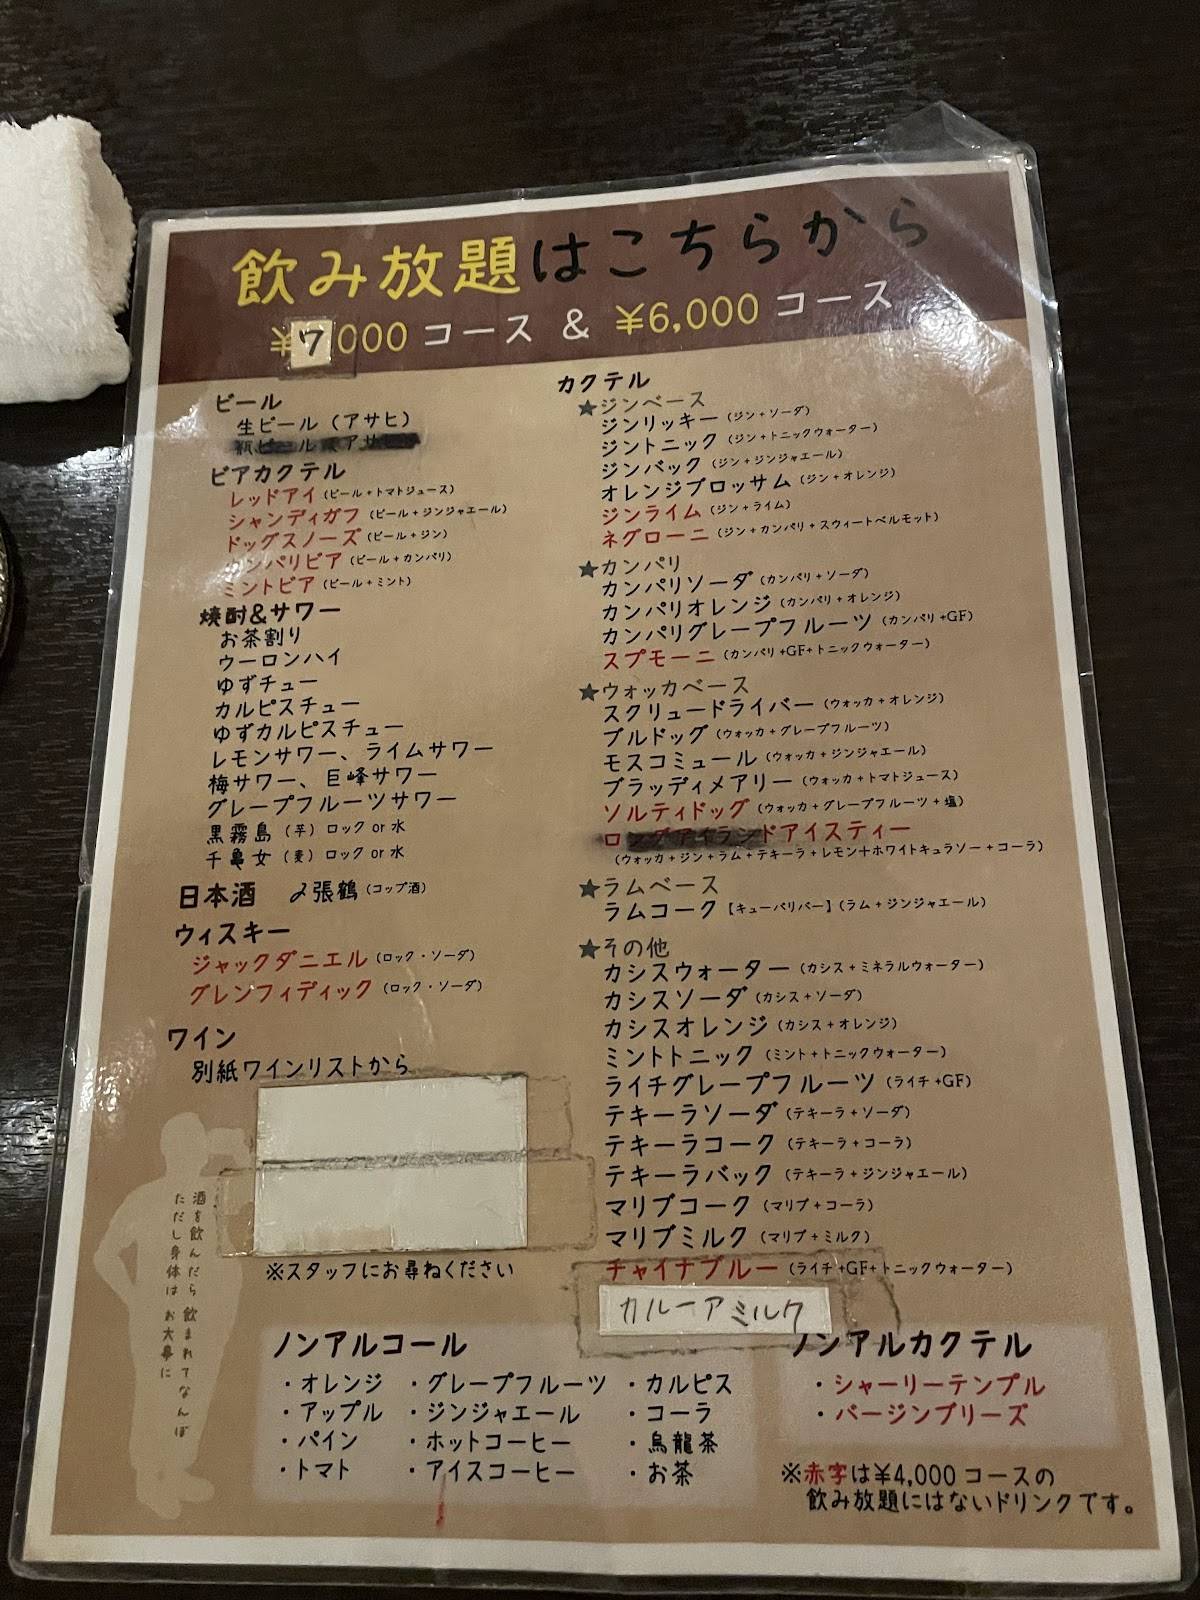 飲み放題はこちらから
¥7,000 コース & ¥6,000 コース
ビール
生ビール (アサヒ)
瓶ビール アサヒ
ビアカクテル
レッドアイ (ビール+トマトジュース)
シャンディガフ (ビール+ジンジャエール)
ドッグスノーズ (ビール+ジン)
カンパリビア (ビール+カンパリ)
ミントビア (ビール+ミント)
焼酎&サワー
お茶割り
ウーロンハイ
ゆずチュー
カルピスチュー
ゆずカルピスチュー
レモンサワー、ライムサワー
梅サワー、巨峰サワー
グレープフルーツサワー
黒霧島 (芋) ロック or 水
千亀女 (麦) ロック or 水
日本酒 〆張鶴 (コップ酒)
ウィスキー
ジャックダニエル (ロック・ソーダ)
グレンフィディック (ロック・ソーダ)
ワイン
別紙ワインリストから
※スタッフにお尋ねください
酒を飲んだら 飲まれてなんぼ
ただし身体は お大事に
カクテル
★ジンベース
ジンリッキー (ジン+ソーダ)
ジントニック (ジン+トニックウォーター)
ジンバック (ジン+ジンジャエール)
オレンジブロッサム (ジン+オレンジ)
ジンライム (ジン+ライム)
ネグローニ (ジン+カンパリ+スウィートベルモット)
★カンパリ
カンパリソーダ (カンパリ+ソーダ)
カンパリオレンジ (カンパリ+オレンジ)
カンパリグレープフルーツ (カンパリ+GF)
スプモーニ (カンパリ+GF+トニックウォーター)
★ウォッカベース
スクリュードライバー (ウォッカ+オレンジ)
ブルドッグ (ウォッカ+グレープフルーツ)
モスコミュール (ウォッカ+ジンジャエール)
ブラッディメアリー (ウォッカ+トマトジュース)
ソルティドッグ (ウォッカ+グレープフルーツ+塩)
ロングアイランドアイスティー
(ウォッカ+ジン+ラム+テキーラ+レモン+ホワイトキュラソー+コーラ)
★ラムベース
ラムコーク【キューバリバー】(ラム+ジンジャエール)
★その他
カシスウォーター (カシス+ミネラルウォーター)
カシスソーダ (カシス+ソーダ)
カシスオレンジ (カシス+オレンジ)
ミントトニック (ミント+トニックウォーター)
ライチグレープフルーツ (ライチ+GF)
テキーラソーダ (テキーラ+ソーダ)
テキーラコーク (テキーラ+コーラ)
テキーラバック (テキーラ+ジンジャエール)
マリブコーク (マリブ+コーラ)
マリブミルク (マリブ+ミルク)
チャイナブルー (ライチ+GF+トニックウォーター)
カルーアミルク
ノンアルコール
・オレンジ ・グレープフルーツ ・カルピス
・アップル ・ジンジャエール ・コーラ
・パイン ・ホットコーヒー ・烏龍茶
・トマト ・アイスコーヒー ・お茶
ノンアルカクテル
・シャーリーテンプル
・バージンブリーズ
※赤字は¥4,000 コースの
飲み放題にはないドリンクです。